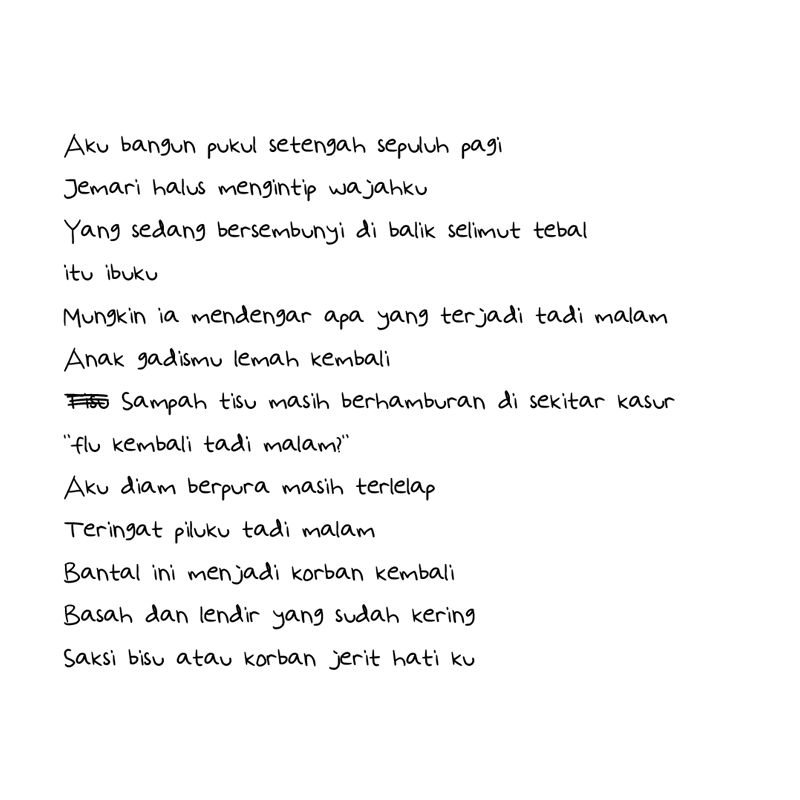 Aku bangun pukul setengah sepuluh pagi
Jemari halus mengintip wajahku
Yang sedang bersembunyi di balik selimut tebal
itu ibuku
Mungkin ia mendengar apa yang terjadi tadi malam
Anak gadismu lemah kembali
Sampah tisu masih berhamburan di sekitar kasur
"flu kembali tadi malam?"
Aku diam berpura masih terlelap
Teringat piluku tadi malam
Bantal ini menjadi korban kembali
Basah dan lendir yang sudah kering
Saksi bisu atau korban jerit hati ku